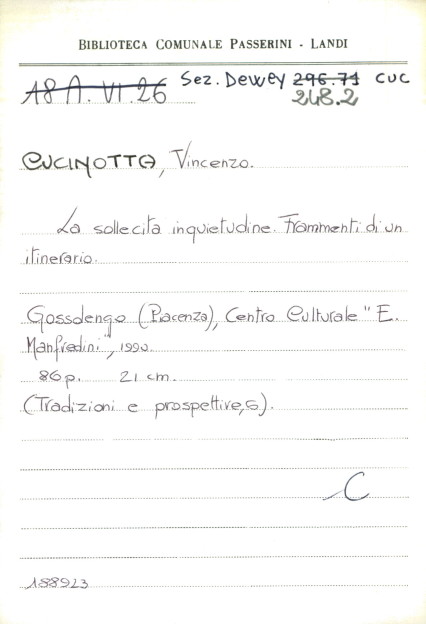 BIBLIOTECA COMUNALE PASSERINI - LANDI
18 A. VI. 26 Sez. Dewey 296.71 CUC
248.2
CUCINOTTA, Vincenzo.
La sollecita inquietudine. Frammenti di un
itinerario.
Gossolengo (Piacenza), Centro Culturale "E.
Manfredini", 1990.
86 p. 21 cm.
(Tradizioni e prospettive, 5).
C
188923